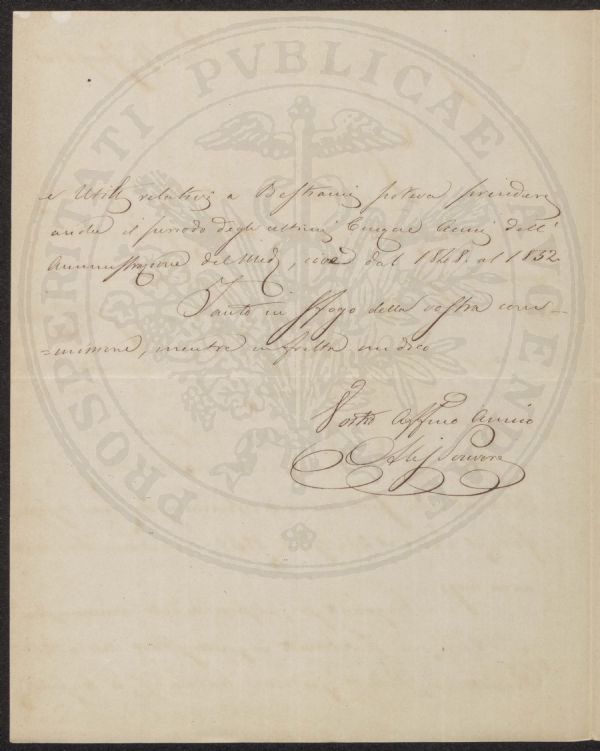 PROSPERITATI PVBLICAE AVGENDAE
e Utili relativi a Bestiami poteva prendere
anche il periodo degli ultimi Cinque Anni dell'
Amministrazione del Med., cioè dal 1848. al 1852.
Tanto in sfogo della vostra com=
=missione, mentre in fretta mi dico
Vostro Affmo Amico